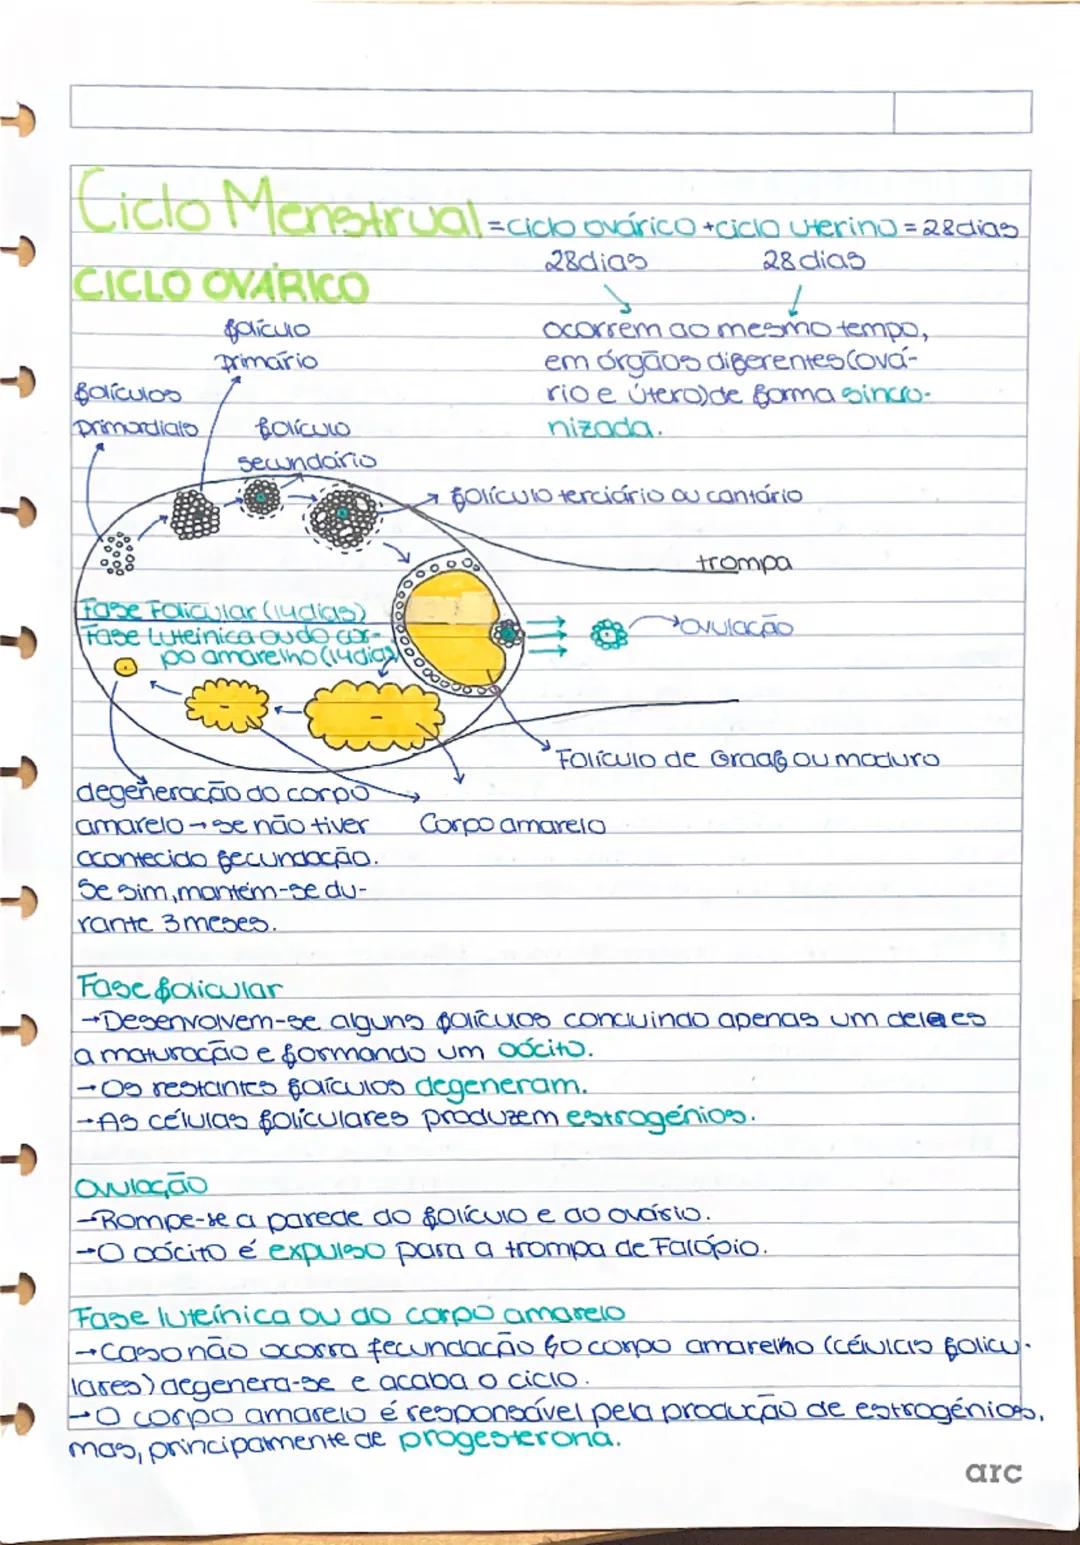 Ciclo Menstrual = ciclo ovárico + ciclo uterino = 28 dias
28 dias 28 dias
CICLO OVÁRICO
ocorrem ao mesmo tempo,
em órgãos diferentes (ová-
rio e útero) de forma sincro-
nizada.
folículo
primário
folículos
primordiais
folículo
secundário
folículo terciário ou cantário
trompa
Fase Folicular (14 dias)
Fase Luteínica ou do cor-
po amarelho (14 dias)
ovulação
Folículo de Graaf ou maduro
degeneração do corpo
amarelo → se não tiver
acontecido fecundação.
Se sim, mantém-se du-
rante 3 meses.
Corpo amarelo
Fase folicular
→ Desenvolvem-se alguns folículos concluindo apenas um deles
a maturação e formando um oócito.
→ Os restantes folículos degeneram.
→ As células folículares produzem estrogénios.
Ovulação
→ Rompe-se a parede do folículo e do ovário.
→ O oócito é expulso para a trompa de Falópio.
Fase luteínica ou do corpo amarelo
→ Caso não ocorra fecundação o corpo amarelho (células folicu-
lares) degenera-se e acaba o ciclo.
→ O corpo amarelo é responsável pela produção de estrogénios,
mas, principamente de progesterona.
arc